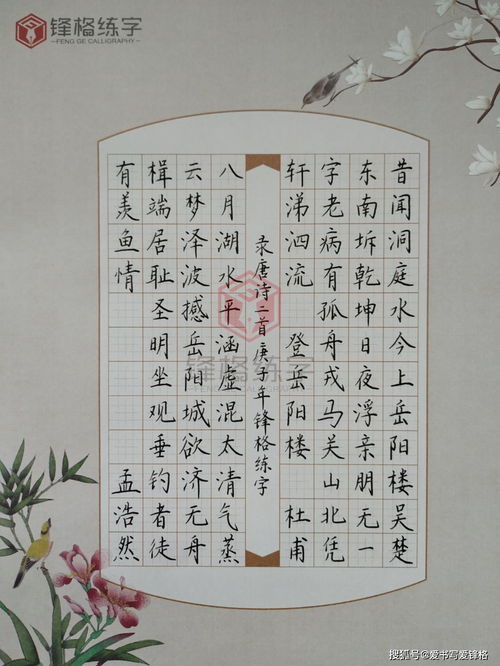 锋格练字
—FENG GE CALLIGRAPHY—
昔闻洞庭水今上岳阳楼吴楚
东南坼乾坤日夜浮亲朋无一
字老病有孤舟戎马关山北凭
轩涕泗流 登岳阳楼 杜甫
录唐诗二首庚子年锋格练字
八月湖水平涵虚混太清气蒸
云梦泽波撼岳阳城欲济无舟
楫端居耻圣明坐观垂钓者徒
有羡鱼情 孟浩然
锋格练字
搜狐号@爱书写爱锋格